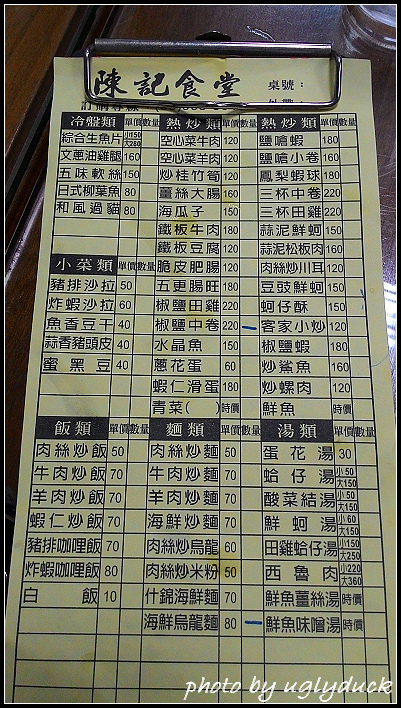 陳記食堂
桌號：
冷盤類 單價 數量
綜合生魚片 小150 大280
文蔥油雞腿 160
五味軟絲 150
日式柳葉魚 80
和風過貓 80
小菜類 單價 數量
豬排沙拉 50
炸蝦沙拉 60
魚香豆干 40
蒜香豬頭皮 40
蜜黑豆 40
熱炒類 單價 數量
空心菜牛肉 120
空心菜羊肉 120
炒桂竹筍 120
薑絲大腸 160
海瓜子 150
鐵板牛肉 180
鐵板豆腐 120
脆皮肥腸 120
五更腸旺 180
椒鹽田雞 220
椒鹽中卷 220
水晶魚 150
蔥花蛋 60
蝦仁滑蛋 180
青菜( ) 時價
熱炒類 單價 數量
鹽嗆蝦 180
鹽嗆小卷 160
鳳梨蝦球 180
三杯中卷 220
三杯田雞 220
蒜泥鮮蚵 150
蒜泥松板肉 160
肉絲炒川耳 120
豆豉鮮蚵 150
蚵仔酥 150
客家小炒 120
椒鹽蝦 180
炒鯊魚 160
炒螺肉 120
鮮魚 時價
飯類 單價 數量
肉絲炒飯 50
牛肉炒飯 70
羊肉炒飯 70
蝦仁炒飯 70
豬排咖哩飯 70
炸蝦咖哩飯 80
白飯 10
麵類 單價 數量
肉絲炒麵 50
牛肉炒麵 70
羊肉炒麵 70
海鮮炒麵 70
肉絲炒烏龍 60
肉絲炒米粉 50
什錦海鮮麵 70
海鮮烏龍麵 80
湯類 單價 數量
蛋花湯 30
蛤仔湯 小50 大150
酸菜結湯 小50 大150
鮮蚵湯 小60 大150
田雞蛤仔湯 小150 大250
西魯肉 小220 大360
鮮魚薑絲湯 時價
鮮魚味噌湯 時價
photo by uglyduck